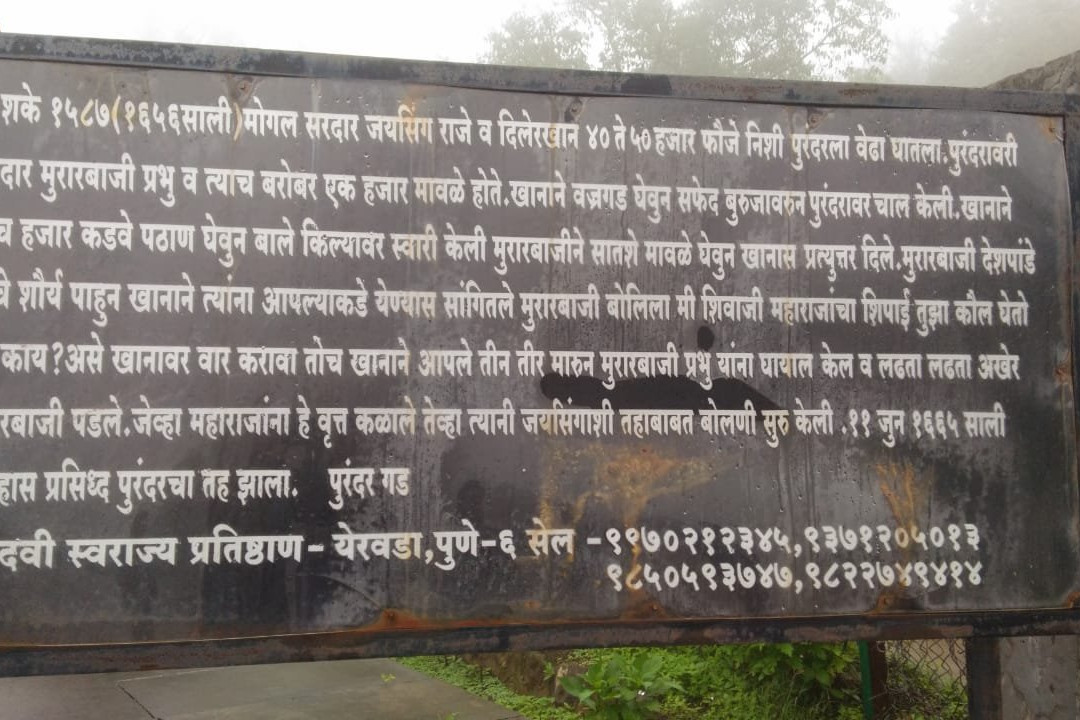 शके १५८७(१६५६साली)मोगल सरदार जयसिंग राजे व दिलेरखान ४० ते ५० हजार फौजे निशी पुरंदरला वेढा घातला.पुरंदरावरी
दार मुरारबाजी प्रभु व त्याच बरोबर एक हजार मावळे होते.खानाने वज्रगड घेवुन सफेद बुरुजावरुन पुरंदरावर चाल केली.खानाने
च हजार कडवे पठाण घेवुन बाले किल्यावर स्वारी केली मुरारबाजीने सातशे मावळे घेवुन खानास प्रत्युत्तर दिले.मुरारबाजी देशपांडे
चे शौर्य पाहुन खानाने त्यांना आपल्याकडे येण्यास सांगितले मुरारबाजी बोलिला मी शिवाजी महाराजांचा शिपाई तुझा कौल घेतो
काय?असे खानावर वार करावा तोच खानाने आपले तीन तीर मारुन मुरारबाजी प्रभु यांना घायाल केल व लढता लढता अखेर
रबाजी पडले.जेव्हा महाराजांना हे वृत्त कळाले तेव्हा त्यानी जयसिंगाशी तहाबाबत बोलणी सुरु केली .११ जुन १६६५ साली
हास प्रसिध्द पुरंदरचा तह झाला. पुरंदर गड
दवी स्वराज्य प्रतिष्ठाण- येरवडा,पुणे-६ सेल -९९७०२१२३४५,९३७१२०५०१३
९८५०५९३७४७,९८२२७४९४१४